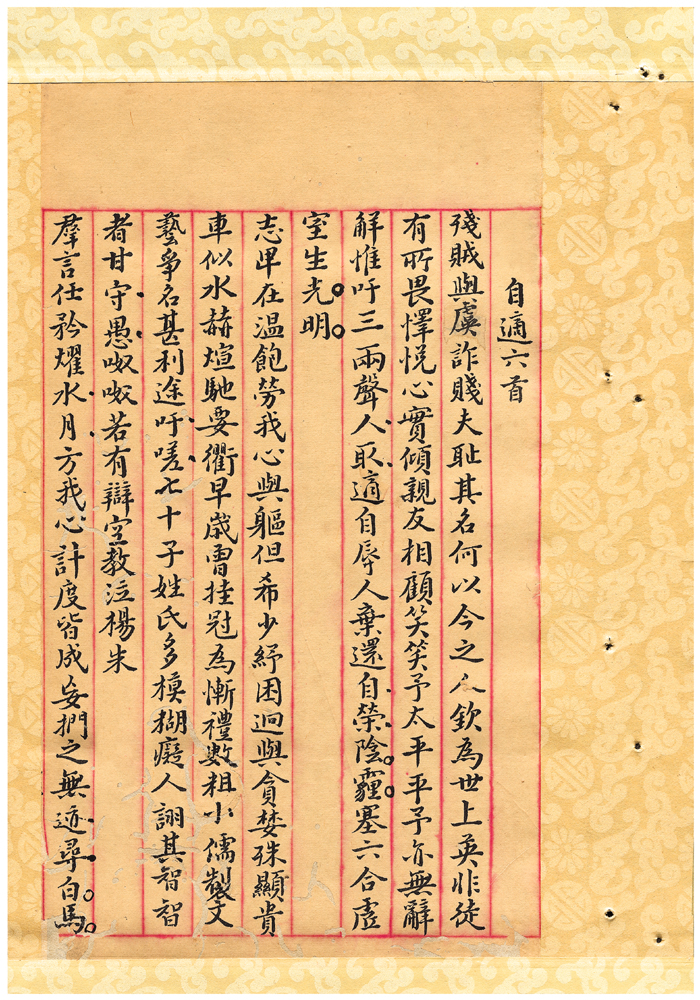 自適六首
殘賊與虞詐賤夫恥其名何以今之人欽為世上英非徒
有所畏懌悅心實傾親友相顧笑笑予太平平予亦無辭
解惟吁三兩聲人取適自辱人棄還自榮陰霾塞六合虛
室生光明
志卑在温飽勞我心與軀但希少紓困迥與貪婪殊顯貴
車似水赫煊馳要衢早歲曾挂冠為慚禮數粗小儒製文
藝爭名甚利途吁嗟七十子姓氏多模糊癡人詡其智智
者甘守愚呶呶若有辯空教泣楊朱
羣言任矜燿水月方我心計度皆成妄捫之無迹尋白馬